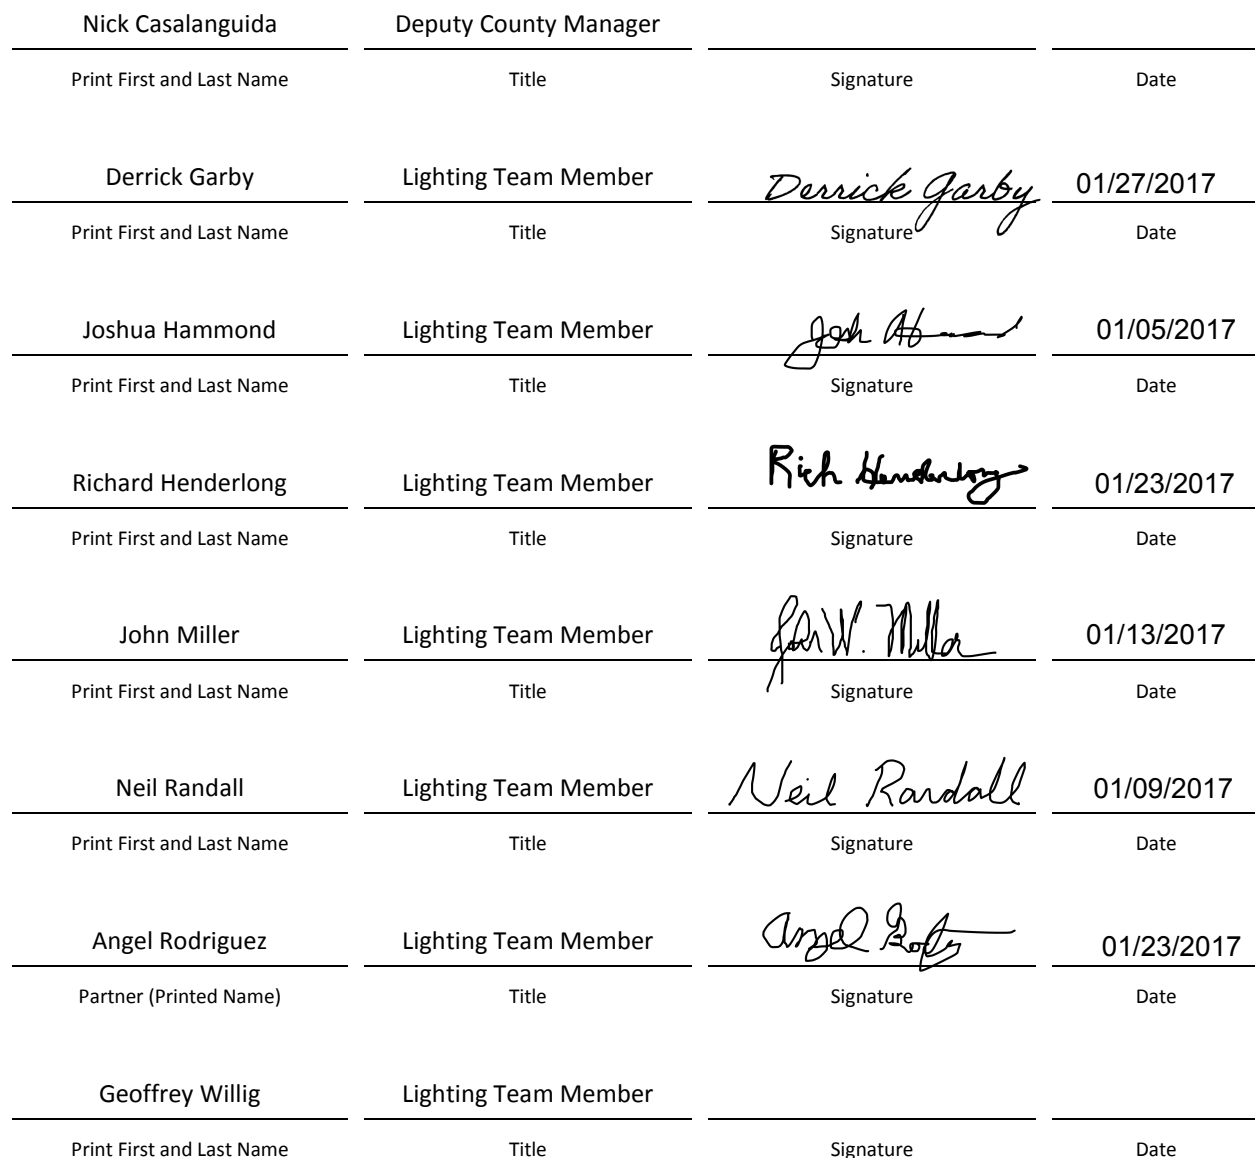 Nick Casalanguida Deputy County Manager
Print First and Last Name Title Signature Date
Derrick Garby Lighting Team Member Derrick Garby 01/27/2017
Print First and Last Name Title Signature Date
Joshua Hammond Lighting Team Member Josh 01/05/2017
Print First and Last Name Title Signature Date
Richard Henderlong Lighting Team Member Rich Henderlong 01/23/2017
Print First and Last Name Title Signature Date
John Miller Lighting Team Member John W. Miller 01/13/2017
Print First and Last Name Title Signature Date
Neil Randall Lighting Team Member Neil Randall 01/09/2017
Print First and Last Name Title Signature Date
Angel Rodriguez Lighting Team Member Angel 01/23/2017
Partner (Printed Name) Title Signature Date
Geoffrey Willig Lighting Team Member
Print First and Last Name Title Signature Date